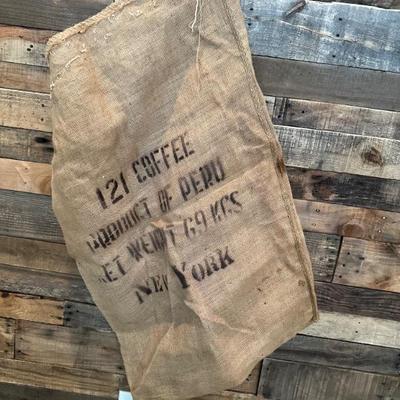 121 COFFEE
PRODUCT OF PERU
NET WEIGHT 69 KGS
NEW YORK